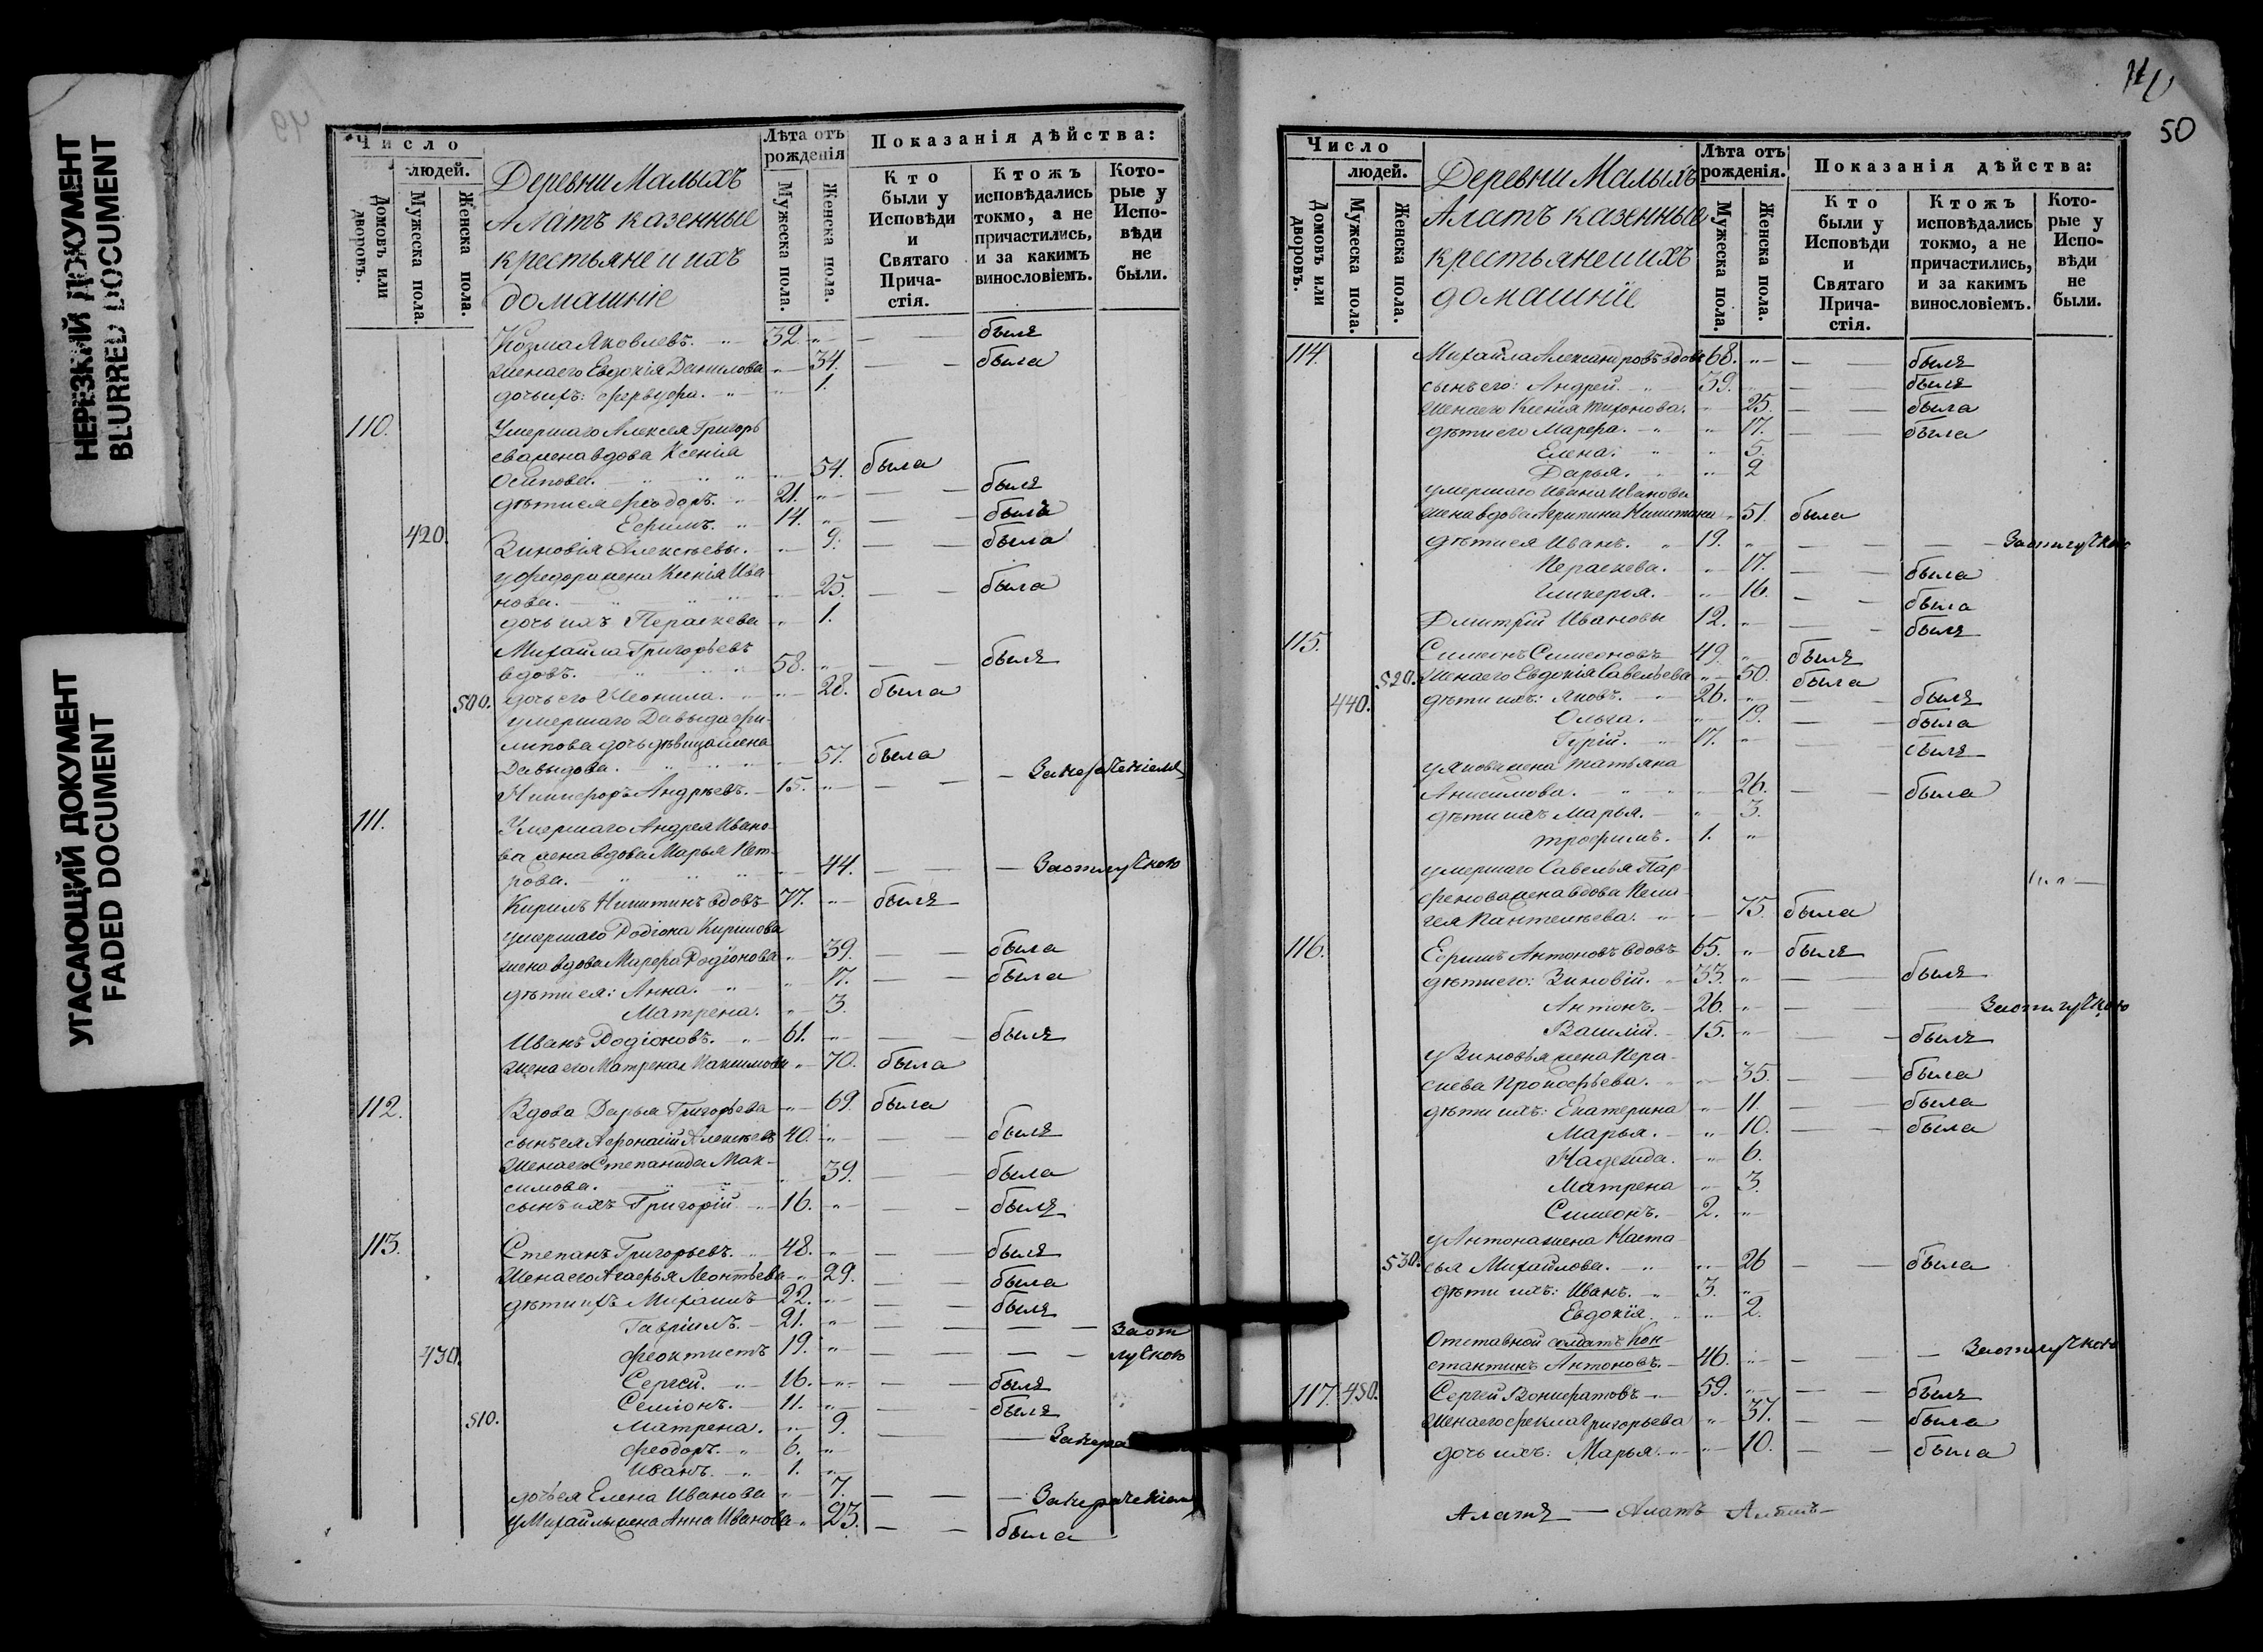 НЕРЕЗКИЙ ДОКУМЕНТ
BLURRED DOCUMENT
УГАСАЮЩИЙ ДОКУМЕНТ
FADED DOCUMENT
Число
людей.
Домовъ или дворовъ.
Мужеска пола.
Женска пола.
Деревни Малыхъ
Алатъ казенные
крестьяне и ихъ
домашніе
Лѣта отъ
рожденія
Мужеска пола.
Женска пола.
Показанія дѣйства:
Кто были у Исповѣди и Святаго Причастія.
Ктожъ исповѣдались токмо, а не причастились, и за какимъ винословіемъ.
Которые у Исповѣди не были.
Козма Яковлевъ. 32. былъ
жена его Евдокія Данилова 34. была
дочь ихъ: 1.
110. Умершаго Алексея Григорь
ева жена вдова Ксенія
Осипова. 54. была
дѣти ея Феодоръ. 21. былъ
Ефимъ. 14. былъ
420. Зиновія Алексѣевы. 9. была
у Федора жена Ксенія Ива
нова. 25. была
дочь ихъ Параскева 1.
Михайла Григорьевъ
вдовъ. 58. былъ
500. дочь его Неонила. 28. была
умершаго Давыда Фи-
липова дочь дѣвица
Давыдова. 57. была
Никифоръ Андреевъ. 15.
111. Умершаго Андрея Ивано-
ва жена вдова Марья Пет-
рова. 44. За отлучкою
Кирилъ Никитинъ вдовъ 77. былъ
умершаго Родіона Кирилова
жена вдова Марфа Родіонова 39. была
дѣти ея: Анна. 17. была
Матрена. 3.
Иванъ Родіоновъ. 61. былъ
жена его Матрена Максимова 70. была
112. Вдова Дарья Григорьева 69. была
сынъ ея Афонасій Алексѣевъ 40. былъ
жена его Степанида Мак-
симова. 39. была
сынъ ихъ Григорій 16. былъ
113. Степанъ Григорьевъ. 48. былъ
жена его Агафья Леонтьева 29. была
дѣти ихъ Михаилъ 22. былъ
Гавріилъ. 21. За от
430. Феоктистъ 19. лучкою
Сергей. 16. былъ
Семіонъ. 11. былъ
510. Матрена. 9.
Феодоръ. 6.
Иванъ. 1.
дочь ея Елена Иванова 7.
у Михайлы жена Анна Иванова 23. была
50
Число
людей.
Домовъ или дворовъ.
Мужеска пола.
Женска пола.
Деревни Малыхъ
Алатъ казенные
крестьяне и ихъ
домашніе
Лѣта отъ
рожденія.
Мужеска пола.
Женска пола.
Показанія дѣйства:
Кто были у Исповѣди и Святаго Причастія.
Ктожъ исповѣдались токмо, а не причастились, и за какимъ винословіемъ.
Которые у Исповѣди не были.
114. Михайла Александровъ вдовъ 68. былъ
сынъ его: Андрей. 39. былъ
жена его Ксенія Тихонова. 25. была
дѣти его Марфа. 17. была
Елена. 5.
Дарья. 2
умершаго Ивана Иванова
жена вдова Агрипина Никитина 51. была
дѣти ея Иванъ. 19. За отлучкою
Параскева. 17. была
Гликерья. 16. была
Дмитрій Ивановы 12. былъ
115. Симеонъ Симеоновъ 49. былъ
520. жена его Евдокія Савельева 50. была
440. дѣти ихъ: Яковъ. 26. былъ
Ольга. 19. была
Гурій. 17. былъ
у Якова жена Татьяна
Анисимова. 26. была
дѣти ихъ Марья. 3.
Трофимъ. 1.
умершаго Савелья Пар-
фенова жена вдова Пела-
гея Пантелѣева. 75. была
116. Ефимъ Антоновъ вдовъ 65. былъ
дѣти его: Зиновій. 33. былъ
Антонъ. 26. За отлучкою
Василій. 15. былъ
у Зиновья жена Пара-
скева Прокофьева. 35. была
дѣти ихъ: Екатерина 11. была
Марья. 10. была
Надежда. 6.
Матрена 3.
Симеонъ. 2.
у Антона жена Наста-
530. сья Михайлова. 26 была
дѣти ихъ: Иванъ. 3.
Евдокія. 2.
Отставной солдатъ Кон-
стантинъ Антоновъ. 46. За отлучкою
117. 450. Сергей Вонифатовъ 59. былъ
жена его Фекла Григорьева 37. была
дочь ихъ: Марья. 10. была
Алатъ — Алатъ Алатъ